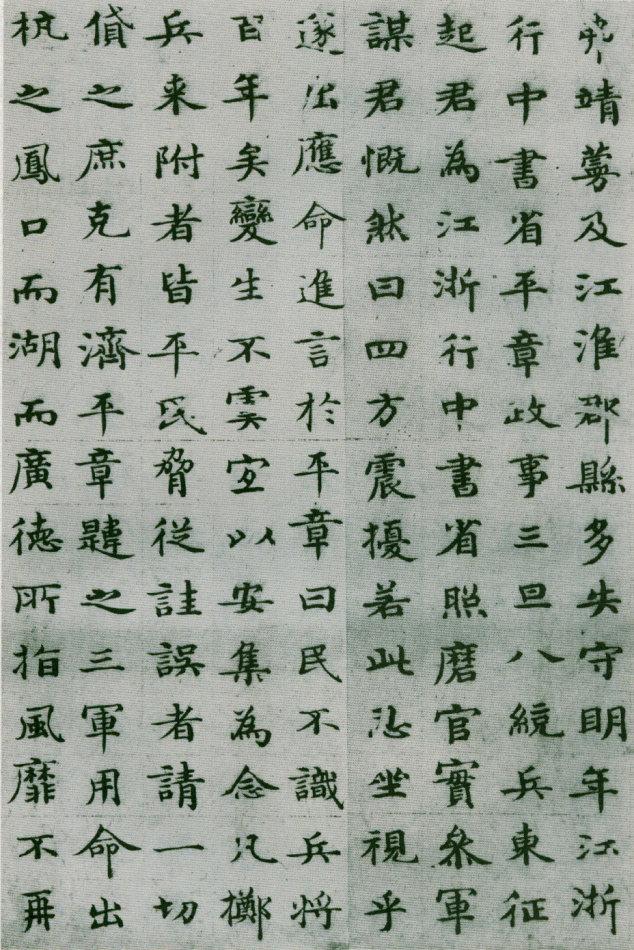 靖及江淮郡縣多失守明年江浙
行中書省平章政事三旦八統兵東征
起君為江浙行中書省照磨官實叅軍
謀君慨然曰四方震擾若此忍坐視乎
遂出應命進言於平章曰民不識兵將
百年矣變生不虞宜以安集為念凡擲
兵来附者皆平民脅從詿誤者請一切
貸之庶克有濟平章韙之三軍用命出
杭之鳳口而湖而廣德所指風靡不再